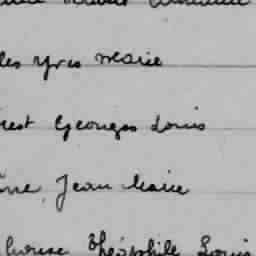 les Yves Marie
rest Georges Louis
ine Jean Marie
Théophile Louis